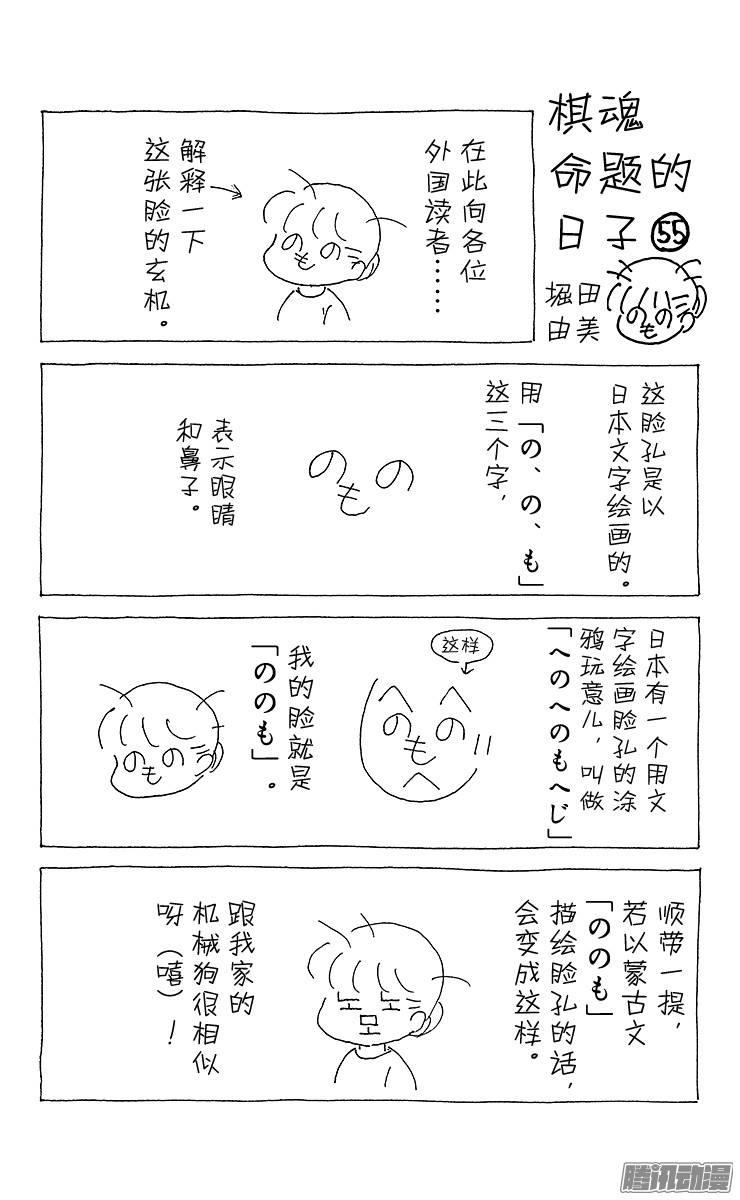 棋魂
命题的
日子55
堀田
由美
のも の
在此向各位
外国读者……
解释一下
这张脸的玄机。
のも の
这脸孔是以
日本文字绘画的。
用「の、の、も」
这三个字，
のも の
表示眼睛
和鼻子。
日本有一个用文
字绘画脸孔的涂
鸦玩意儿，叫做
「へのへのもへじ」
这样
へ へ
のも の
へ
我的脸就是
「ののも」。
のも の
顺带一提，
若以蒙古文
「ののも」
描绘脸孔的话，
会变成这样。
노 노
모
跟我家的
机械狗很相似
呀（嘻）！
腾讯动漫